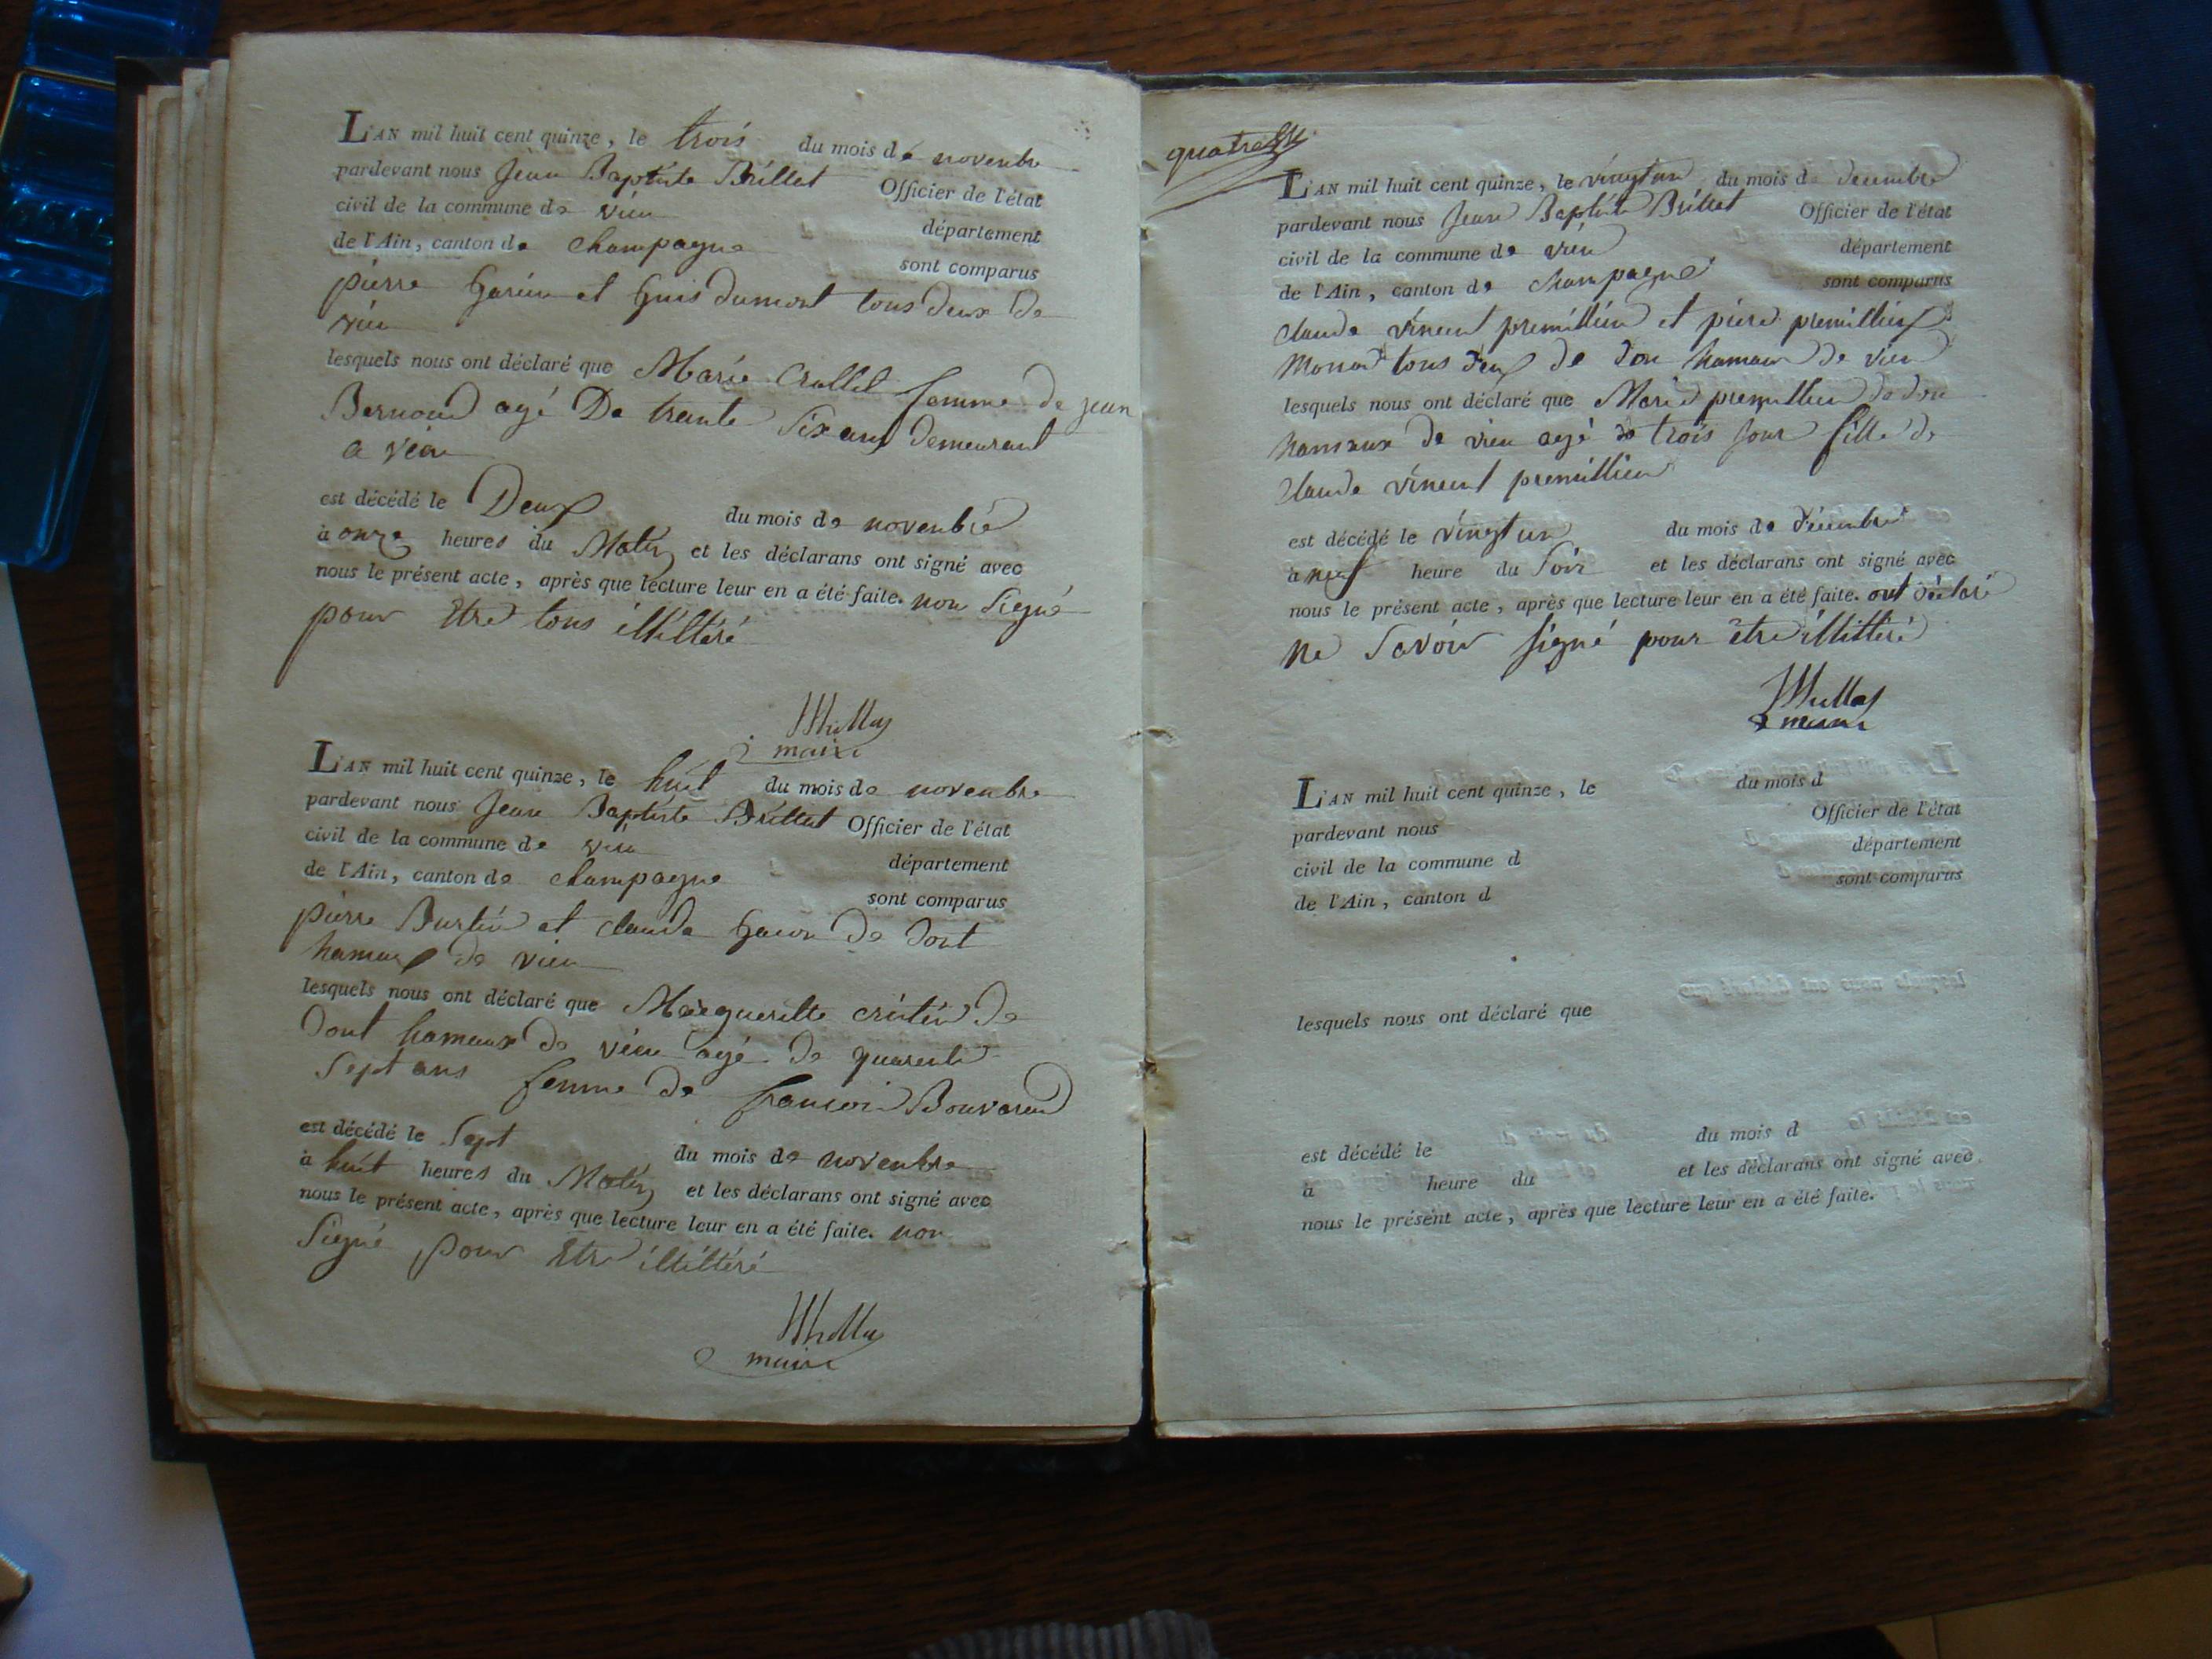 L'AN mil huit cent quinze, le trois du mois de novenbre
pardevant nous Jean Baptiste Brillat Officier de l'état
civil de la commune de vieu département
de l'Ain, canton de Champagne sont comparus
pierre et dumont tous deux De
vieu
lesquels nous ont déclaré que Marie femme de jean
agé De trente Six ans demeurant
a vieu
est décédé le Deux du mois de novenbre
à onze heures du Matin et les déclarans ont signé avec
nous le présent acte, après que lecture leur en a été faite. non Signé
pour Etre tous illiltéré
maire
L'AN mil huit cent quinze, le huit du mois de novenbre
pardevant nous Jean Baptiste Brillat Officier de l'état
civil de la commune de vieu département
de l'Ain, canton de champagne sont comparus
pierre Burtin et claude De Dont
hamaux de vieu
lesquels nous ont déclaré que Margueritte De
Dont hamaux De vieu agé De quarente
Sept ans femme De francois Bouvarend
est décédé le Sept du mois de novenbre
à huit heures du Matin et les déclarans ont signé avec
nous le présent acte, après que lecture leur en a été faite. non
Signé pour Etre illiltéré
maire
quatre
L'AN mil huit cent quinze, le vingt un du mois d decembre
pardevant nous Jean Baptiste Brillat Officier de l'état
civil de la commune de vieu département
de l'Ain, canton de champagne sont comparus
claude vincent premillieu et piere premillieux
tous deux de don hamaux De vieu
lesquels nous ont déclaré que Marie premillieu de don
hamaux De vieu agé de trois jour fille De
claude vincent premillieu
est décédé le vingt un du mois de décembre
à neuf heure du Soir et les déclarans ont signé avec
nous le présent acte, après que lecture leur en a été faite. ont déclaré
ne Savoir signé pour être illittéré
maire
L'AN mil huit cent quinze, le du mois d
pardevant nous Officier de l'état
civil de la commune d département
de l'Ain, canton d sont comparus
lesquels nous ont déclaré que
est décédé le du mois d
à heure du et les déclarans ont signé avec
nous le présent acte, après que lecture leur en a été faite.